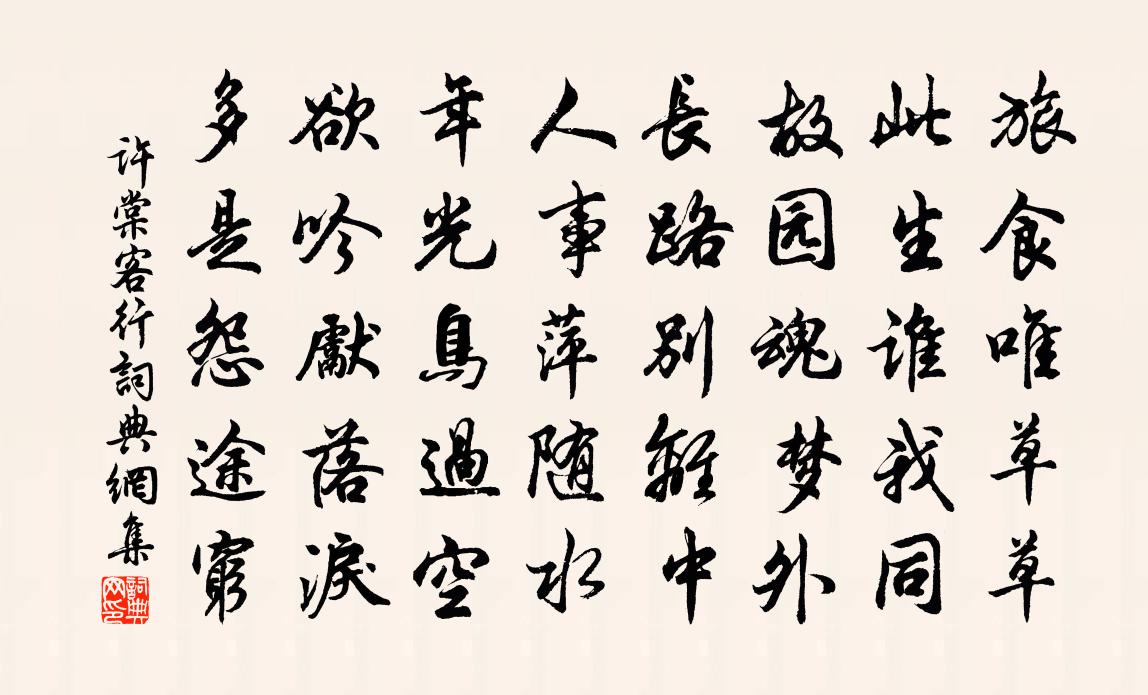 旅食唯草草
此生谁我同
故园魂梦外
長路別離中
人事萍随水
年光鳥過空
欲吟獻落淚
多是怨途窮
許棠客行詞典網集
詞典网印